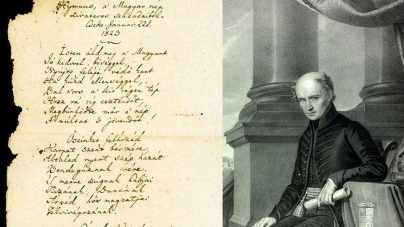 Hymnus, a' Magyar nép
zivataros századaiból.
Cseke, Januar. 22d.
1823
Isten áldd meg a' Magyart
Jó kedvvel, bőséggel,
Nyújts feléje védő kart
Ha küzd ellenséggel;
Bal sors a' kit régen tép
Hozz rá víg esztendőt,
Megbűnhödte már e' nép
A' múltat 's jövendőt!
Őseinket felhozád
Kárpát szent bérczére,
Általad nyert szép hazát
Bendegúznak vére.
'S merre zúgnak habjai
Tiszának, Dunának
Árpád hős magzatjai
Felvirágozának.